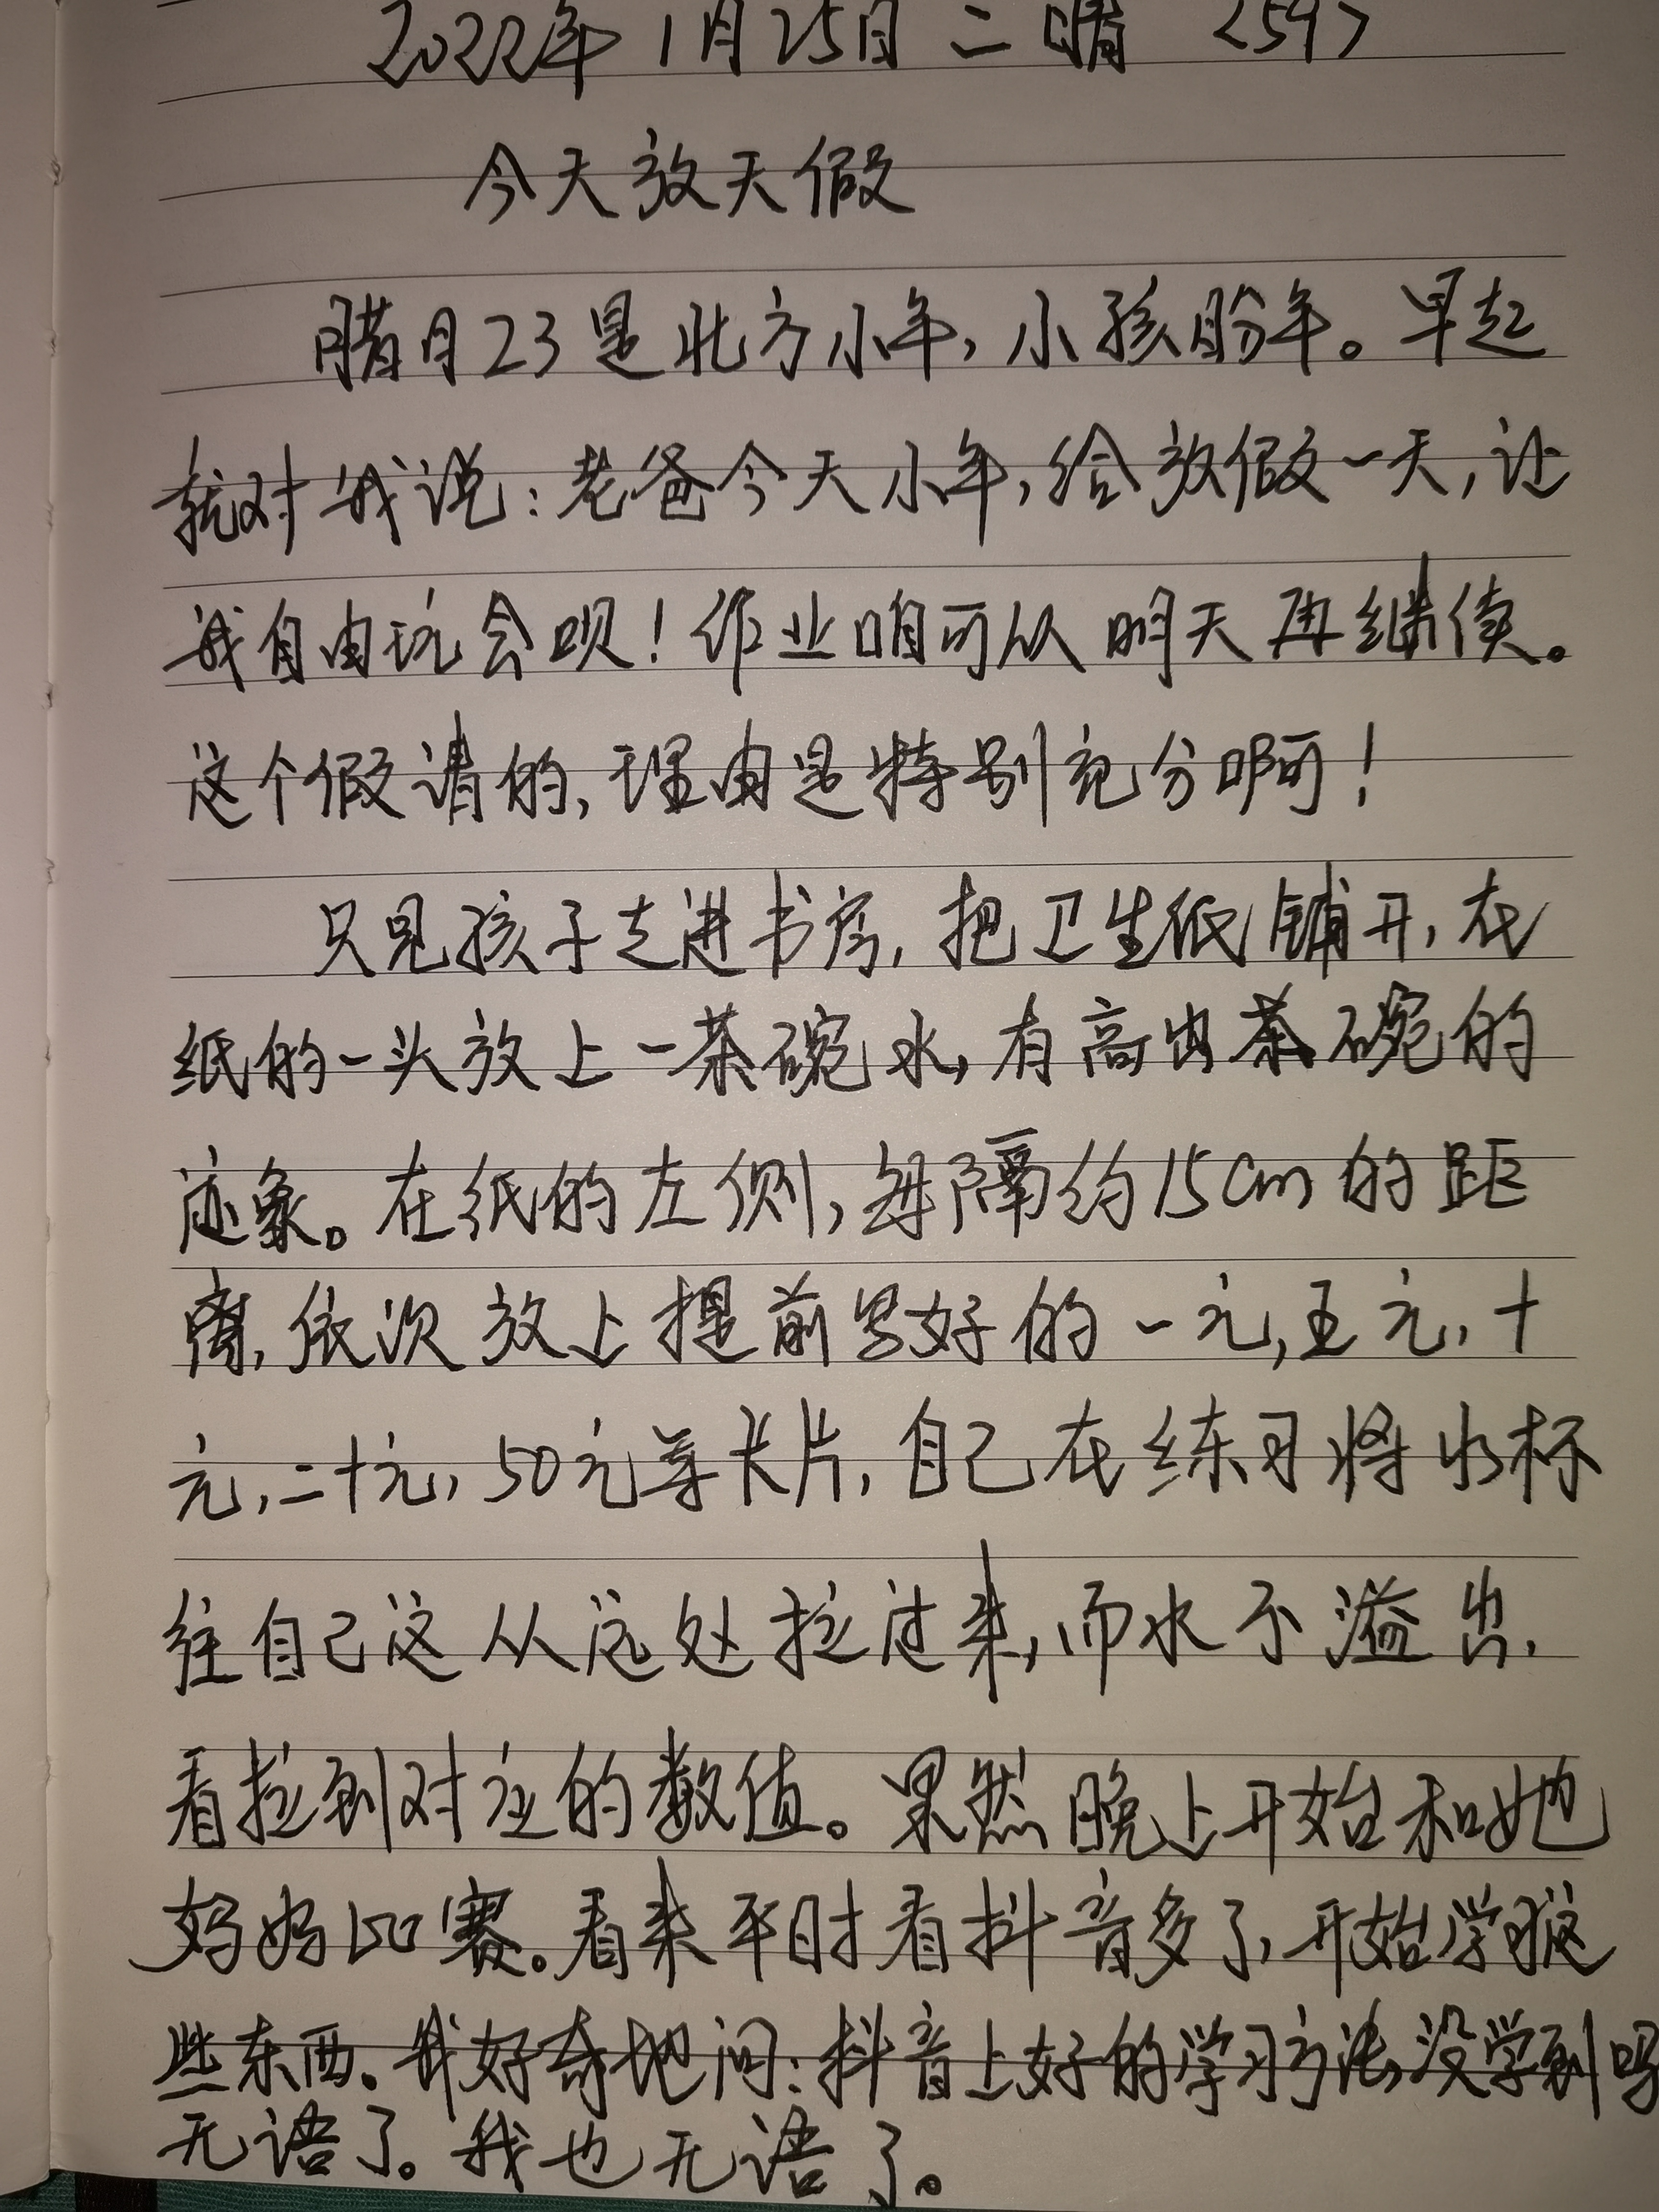 2022年1月25日 二 晴 <59>
今天放天假
腊月23是北方小年，小孩盼年。早起
就对我说：老爸今天小年，给放假一天，让
我自由玩会呗！作业咱可从明天再继续。
这个假请的，理由是特别充分啊！
只见孩子走进书房，把卫生纸铺开，在
纸的一头放上一茶碗水，有高出茶碗的
迹象。在纸的左侧，每隔约15cm的距
离，依次放上提前写好的一元，五元，十
元，二十元，50元等卡片，自己在练习将水杯
往自己这从远处拉过来，而水不溢出，
看拉到对应的数值。果然晚上开始和她
妈妈比赛。看来平时看抖音多了，开始学习这
些东西。我好奇地问：抖音上好的学习方法没学到吗
无语了。我也无语了。